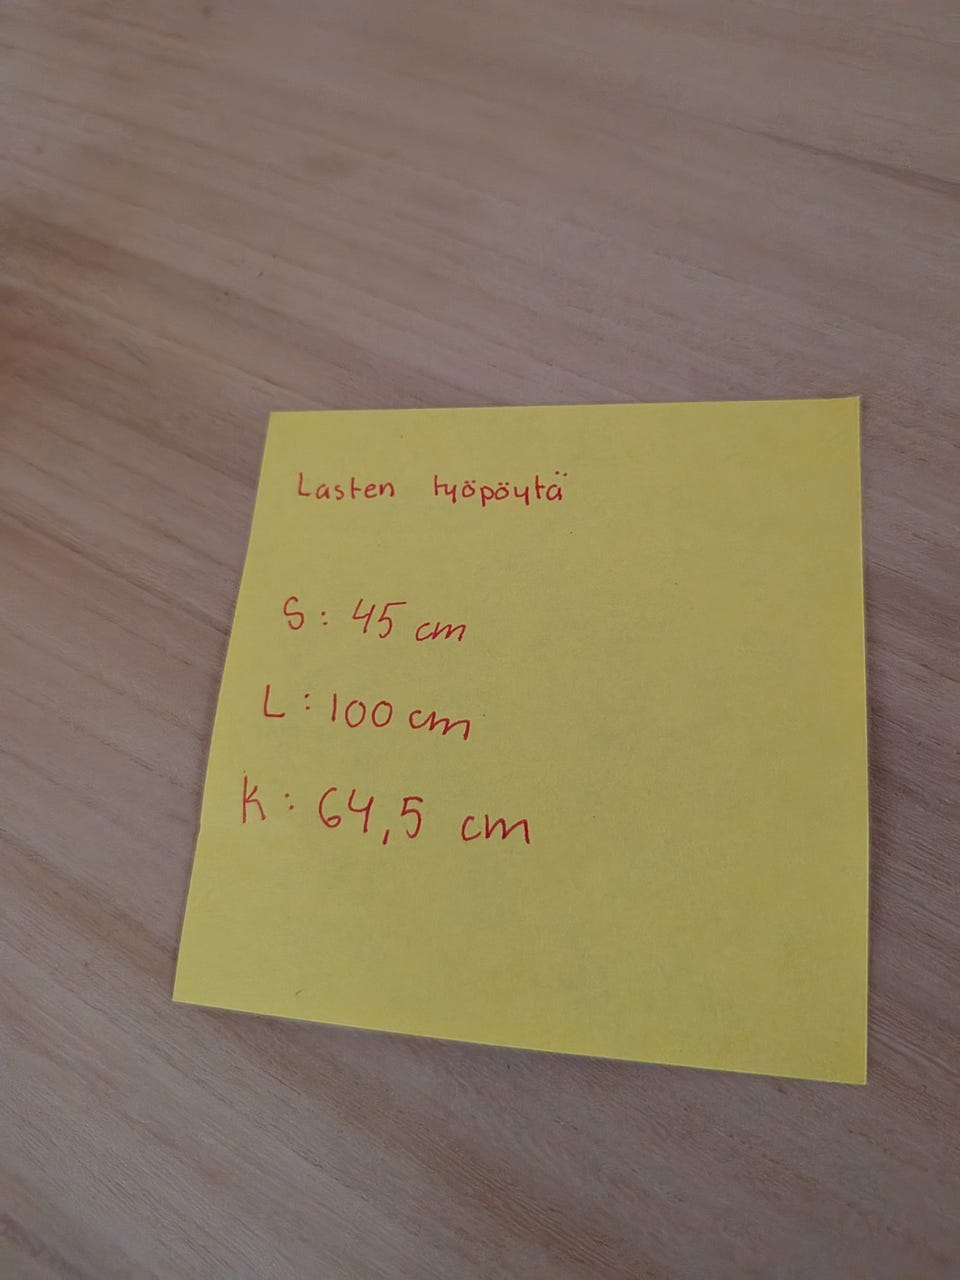 Lasten työpöytä
S: 45 cm
L: 100 cm
K: 64,5 cm